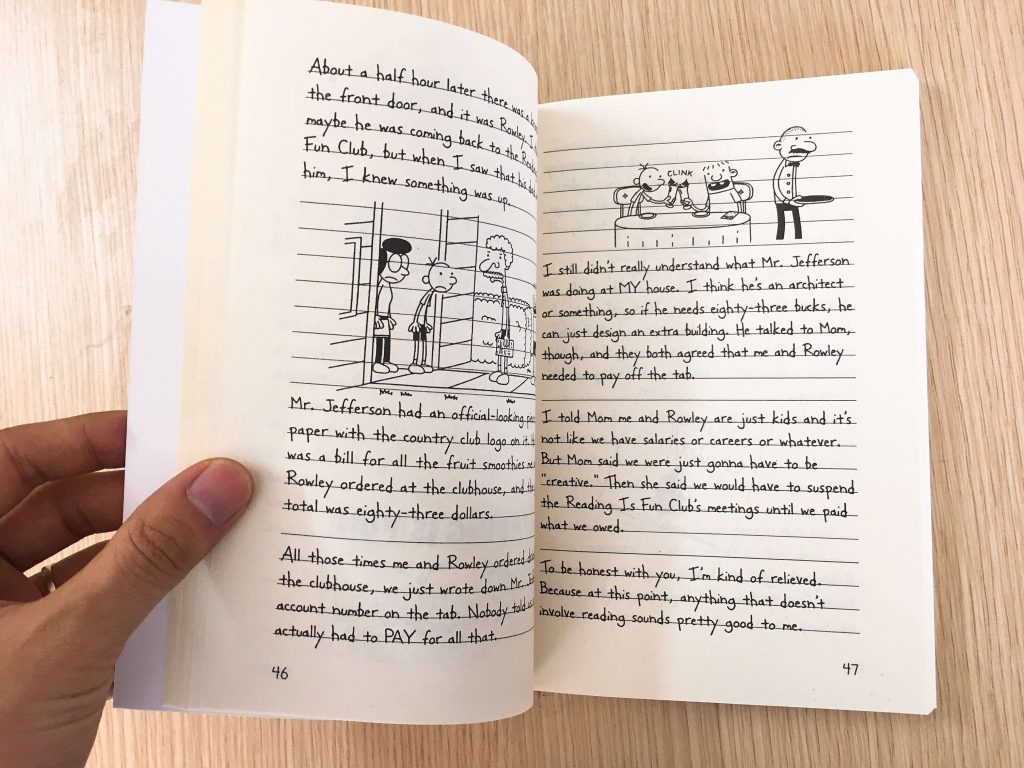 About a half hour later there was a
the front door, and it was Rowley. I
maybe he was coming back to the
Fun Club, but when I saw that his
him, I knew something was up.
Mr. Jefferson had an official-looking
paper with the country club logo on it.
was a bill for all the fruit smoothies
Rowley ordered at the clubhouse, and the
total was eighty-three dollars.
All those times me and Rowley ordered
the clubhouse, we just wrote down Mr.
account number on the tab. Nobody told
actually had to PAY for all that.
46
CLINK
I still didn't really understand what Mr. Jefferson
was doing at MY house. I think he's an architect
or something, so if he needs eighty-three bucks, he
can just design an extra building. He talked to Mom,
though, and they both agreed that me and Rowley
needed to pay off the tab.
I told Mom me and Rowley are just kids and it's
not like we have salaries or careers or whatever.
But Mom said we were just gonna have to be
"creative." Then she said we would have to suspend
the Reading Is Fun Club's meetings until we paid
what we owed.
To be honest with you, I'm kind of relieved.
Because at this point, anything that doesn't
involve reading sounds pretty good to me.
47